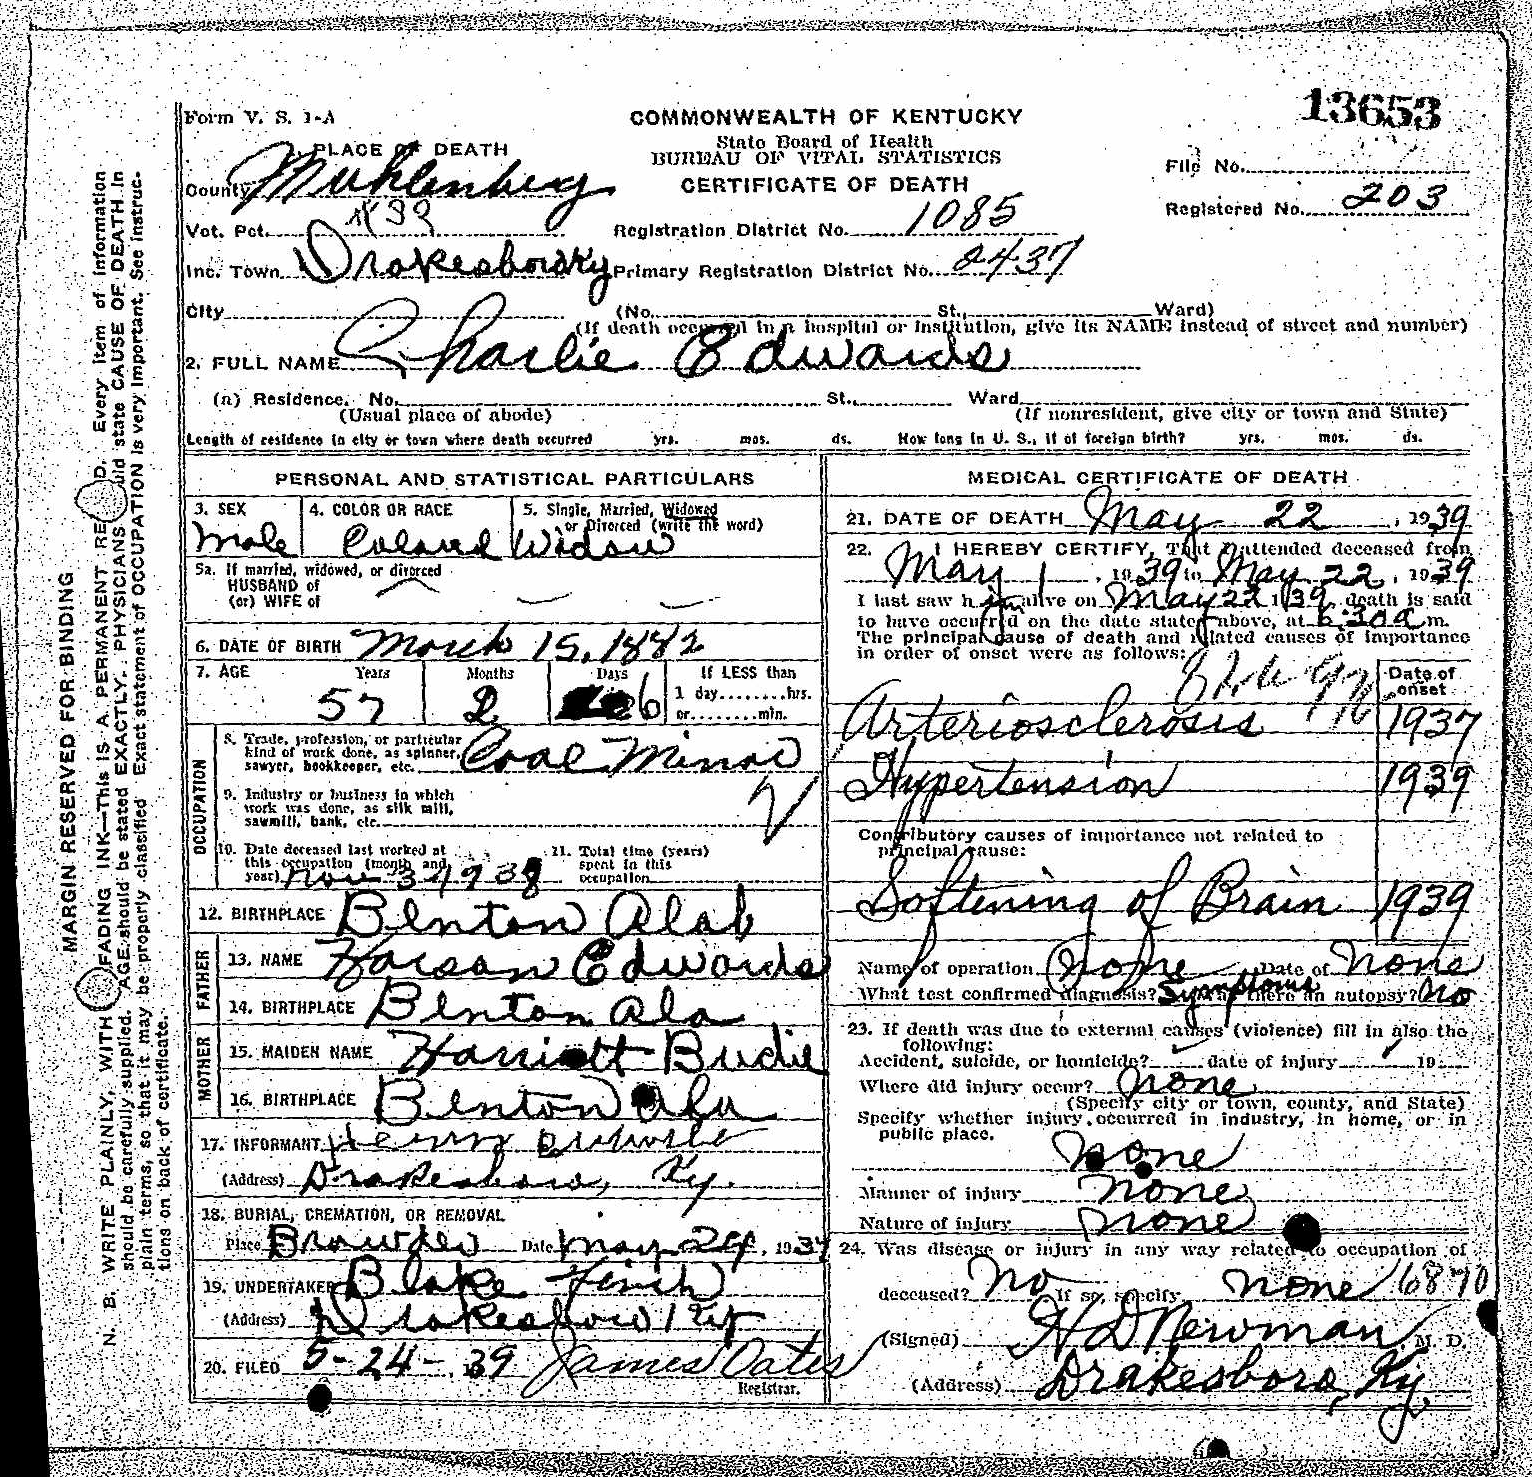 13653
Form V. S. 1-A
COMMONWEALTH OF KENTUCKY
State Board of Health
BUREAU OF VITAL STATISTICS
CERTIFICATE OF DEATH
1. PLACE OF DEATH
County Muhlenberg
File No.
Registered No. 203
Vot. Pct. #39
Registration District No. 1085
Inc. Town Drakesboro Ky
Primary Registration District No. 2437
City
(No. St., Ward)
(If death occurred in a hospital or institution, give its NAME instead of street and number)
2. FULL NAME Charlie Edwards
(a) Residence. No. St., Ward
(Usual place of abode)
(If nonresident, give city or town and State)
Length of residence in city or town where death occurred yrs. mos. ds. How long in U. S., if of foreign birth? yrs. mos. ds.
PERSONAL AND STATISTICAL PARTICULARS
3. SEX
Male
4. COLOR OR RACE
Colored
5. Single, Married, Widowed
or Divorced (write the word)
Widow
5a. If married, widowed, or divorced
HUSBAND of
(or) WIFE of
6. DATE OF BIRTH March 15, 1882
7. AGE Years Months Days If LESS than
57 2 6 1 day hrs.
or min.
OCCUPATION
8. Trade, profession, or particular
kind of work done, as spinner,
sawyer, bookkeeper, etc. Coal Miner
9. Industry or business in which
work was done, as silk mill,
sawmill, bank, etc.
10. Date deceased last worked at
this occupation (month and
year) Nov 3 1938
11. Total time (years)
spent in this
occupation
12. BIRTHPLACE Benton Alab
FATHER
13. NAME Edwards
14. BIRTHPLACE Benton Ala
MOTHER
15. MAIDEN NAME Harriett
16. BIRTHPLACE Benton Ala
17. INFORMANT Henry
(Address) Drakesboro, Ky.
18. BURIAL, CREMATION, OR REMOVAL
Place Browder Date May 24, 1939
19. UNDERTAKER Blake Finch
(Address) Drakesboro Ky
20. FILED 5-24-, 1939 James Oates
Registrar.
MEDICAL CERTIFICATE OF DEATH
21. DATE OF DEATH May 22, 1939
22. I HEREBY CERTIFY, That I attended deceased from
May 1, 1939 to May 22, 1939
I last saw him alive on May 22 1939, death is said
to have occurred on the date stated above, at 6:30a m.
The principal cause of death and related causes of importance
in order of onset were as follows:
Date of
onset
Arteriosclerosis 1937
Hypertension 1939
Contributory causes of importance not related to
principal cause:
Softening of Brain 1939
Name of operation none Date of none
What test confirmed diagnosis? Symptoms Was there an autopsy? No
23. If death was due to external causes (violence) fill in also the
following:
Accident, suicide, or homicide? date of injury 19
Where did injury occur? none
(Specify city or town, county, and State)
Specify whether injury occurred in industry, in home, or in
public place.
none
Manner of injury none
Nature of injury none
24. Was disease or injury in any way related to occupation of
deceased? No If so, specify none 6870
(Signed) H D Newman M. D.
(Address) Drakesboro, Ky
MARGIN RESERVED FOR BINDING
N. B. WRITE PLAINLY, WITH UNFADING INK—This IS A PERMANENT RECORD. Every item of information
should be carefully supplied. AGE should be stated EXACTLY. PHYSICIANS should state CAUSE OF DEATH in
plain terms, so that it may be properly classified. Exact statement of OCCUPATION is very important. See instruc-
tions on back of certificate.